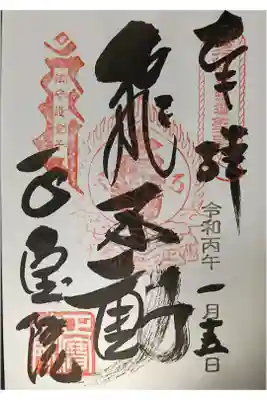 奉拝
令和丙午一月十五日
飛不動
正宝院